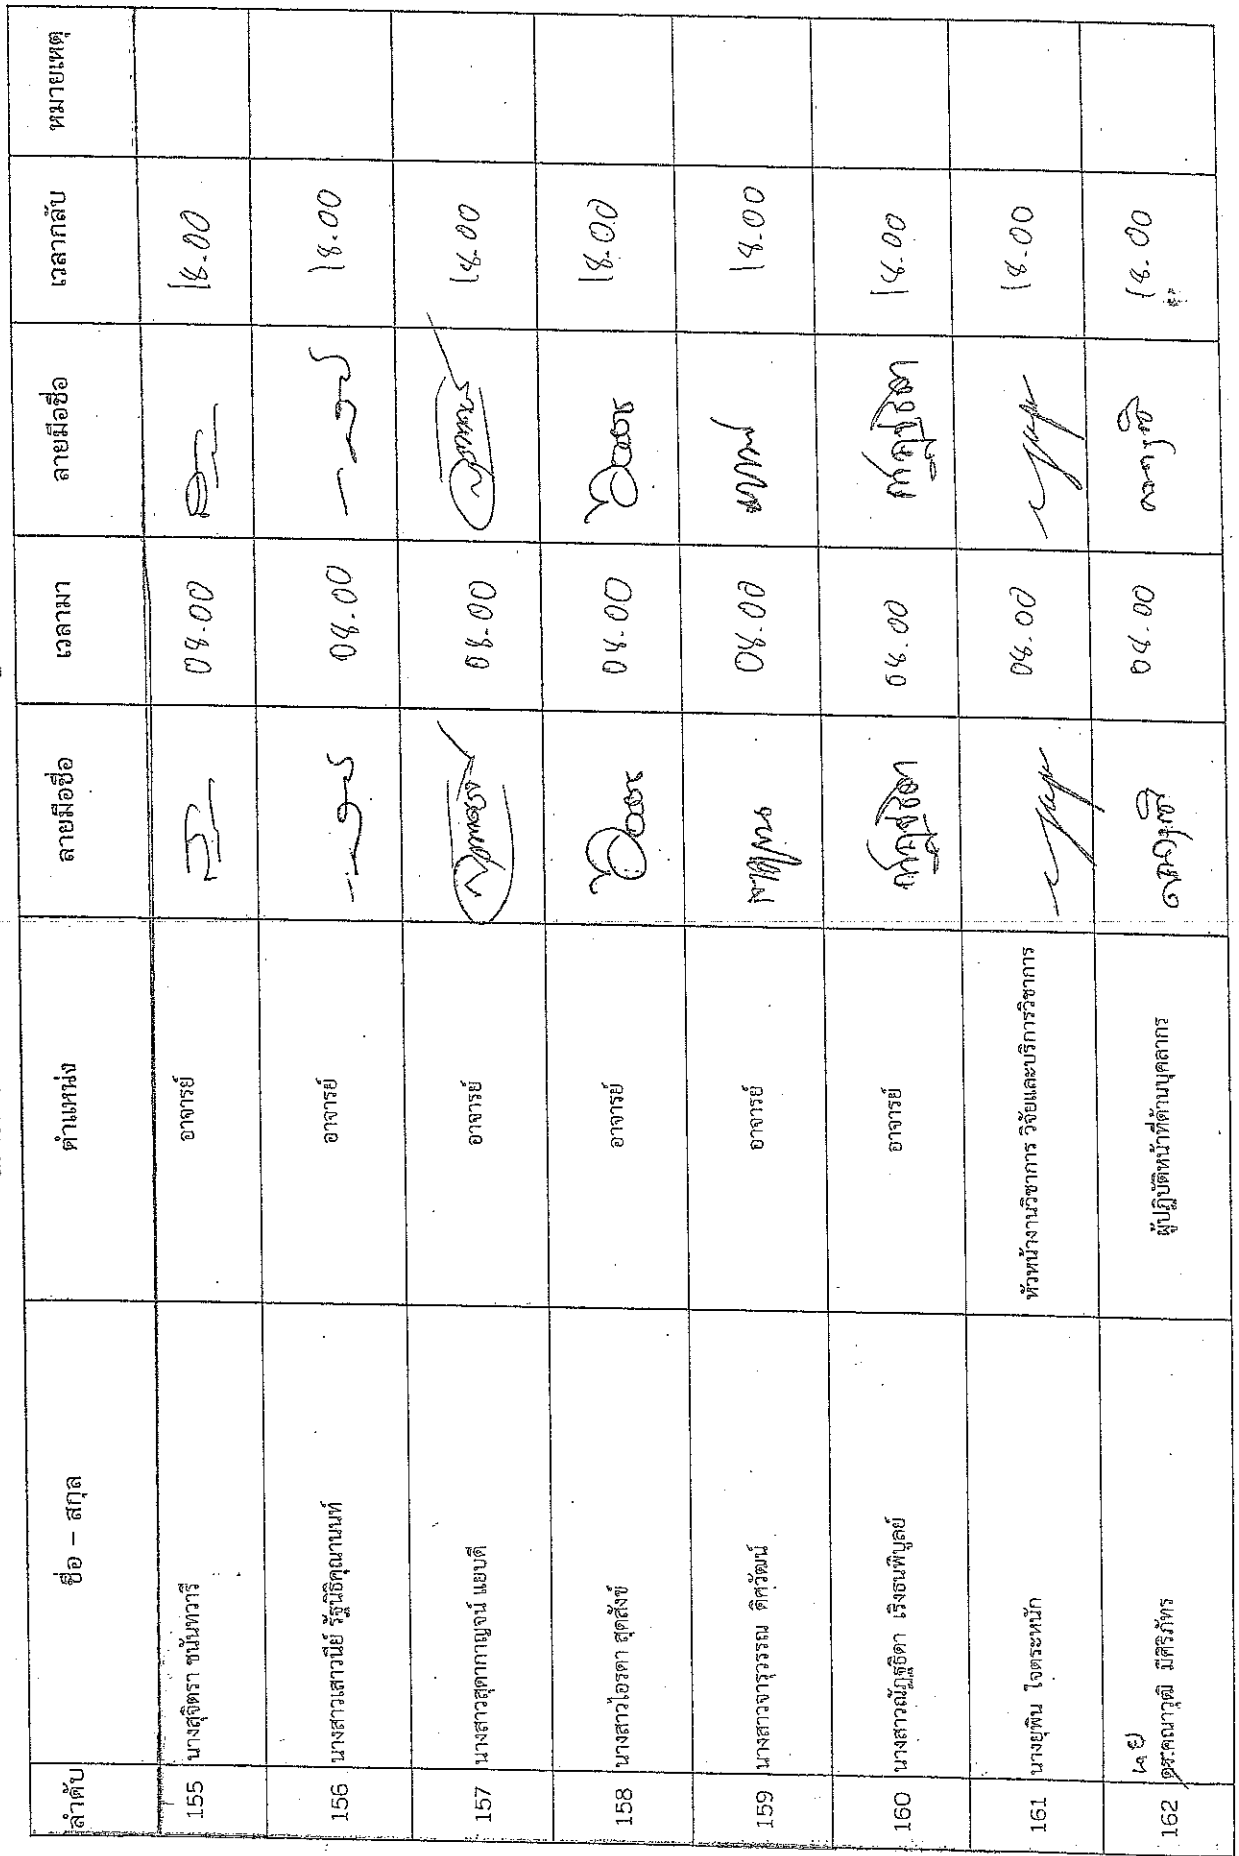 ลำดับ ชื่อ – สกุล ตำแหน่ง ลายมือชื่อ เวลามา ลายมือชื่อ เวลากลับ หมายเหตุ
155 นางสุจิตรา ชนันทวารี อาจารย์ 08.00 18.00
156 นางสาวเสาวนีย์ รัฐนิธิคุณานนท์ อาจารย์ 08.00 18.00
157 นางสาวสุดากาญจน์ แยบดี อาจารย์ 08.00 18.00
158 นางสาวไอรดา สุดสังข์ อาจารย์ 08.00 18.00
159 นางสาวจารุวรรณ ดิศวัฒน์ อาจารย์ 08.00 18.00
160 นางสาวณัฏฐธิดา เริงธนพิบูลย์ อาจารย์ 08.00 18.00
161 นางยุพิน ใจตระหนัก หัวหน้างานวิชาการ วิจัยและบริการวิชาการ 08.00 18.00
นาย
162 ดร.คณาวุฒิ มีศิริภัทร ผู้ปฏิบัติหน้าที่ด้านบุคลากร 08.00 18.00